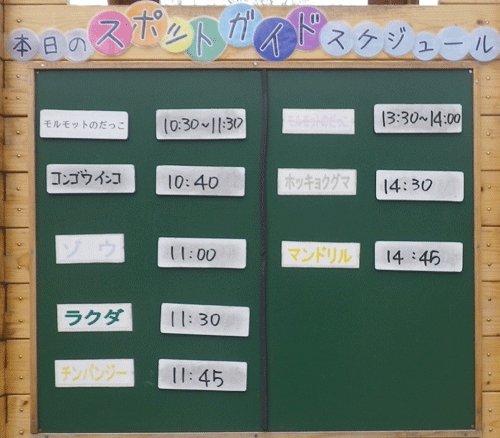 本日のスポットガイドスケジュール
モルモットのだっこ 10:30~11:30
コンゴウインコ 10:40
ゾウ 11:00
ラクダ 11:30
チンパンジー 11:45
モルモットのだっこ 13:30~14:00
ホッキョクグマ 14:30
マンドリル 14:45